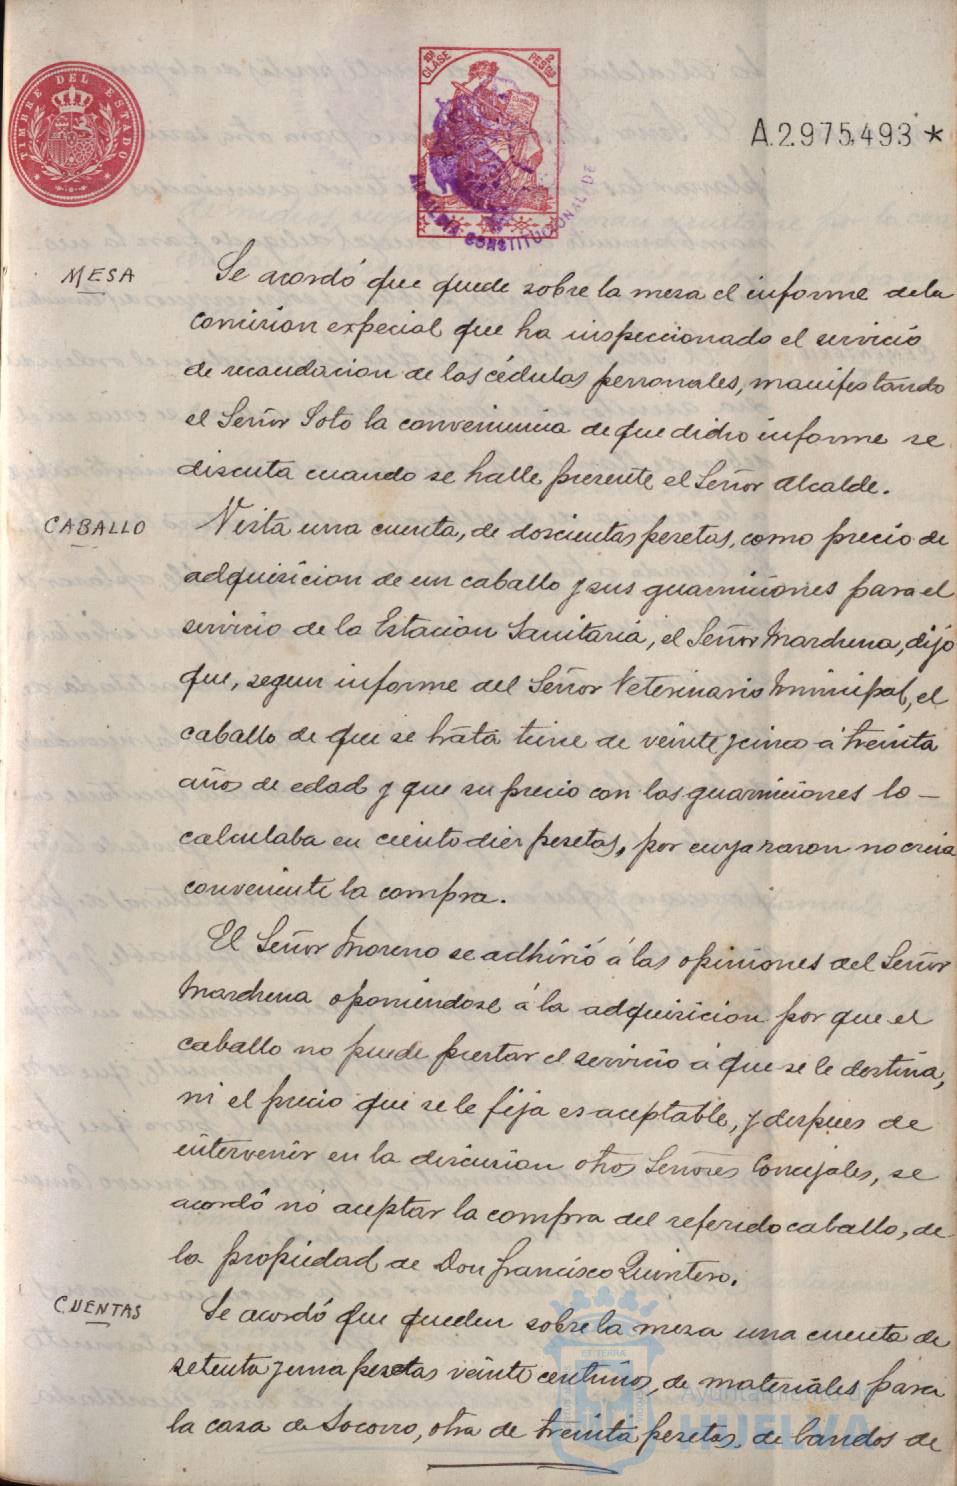 TIMBRE DEL ESTADO
10ª CLASE
2 PESTAS
ALCALDIA CONSTITUCIONAL DE
A.2.975,493 *
MESA
Se acordó que quede sobre la mesa el informe de la
Comision especial que ha inspeccionado el servicio
de recaudacion de las cédulas personales, manifestando
el Señor Soto la conveniencia de que dicho informe se
discuta cuando se halle presente el Señor Alcalde.
CABALLO
Vista una cuenta, de doscientas pesetas, como precio de
adquisicion de un caballo y sus guarniciones para el
servicio de la Estacion Sanitaria, el Señor Marchena, dijo
que, segun informe del Señor Veterinario Municipal, el
caballo de que se trata tiene de veinte y cinco á treinta
años de edad y que su precio con las guarniciones lo—
calculaba en ciento diez pesetas, por cuya razon no creia
conveniente la compra.
El Señor Moreno se adhirió á las opiniones del Señor
Marchena oponiendose á la adquisicion por que el
caballo no puede prestar el servicio á que se le destina,
ni el precio que se le fija es aceptable, y despues de
intervenir en la discusion otros Señores Concejales, se
acordó nó aceptar la compra del referido caballo, de
la propiedad de Don Francisco Quintero.
CUENTAS
Se acordó que queden sobre la mesa una cuenta de
setenta y una pesetas veinte centimos, de materiales para
la casa de Socorro, otra de treinta pesetas, de bandos de
Ayuntamiento de
HUELVA